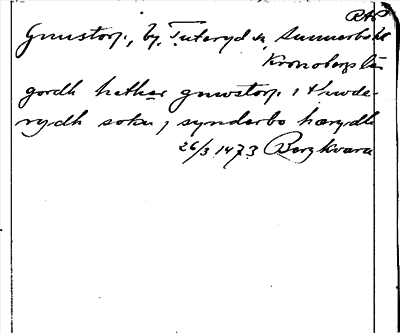 RAP
Gnustorp, by, Tuteryd sn, Sunnerbo hd
Kronobergs län
gordh hether gnwstorp i thwde-
rydh sokn, i synderbo hærydh
26/3 1473 Bergkvara